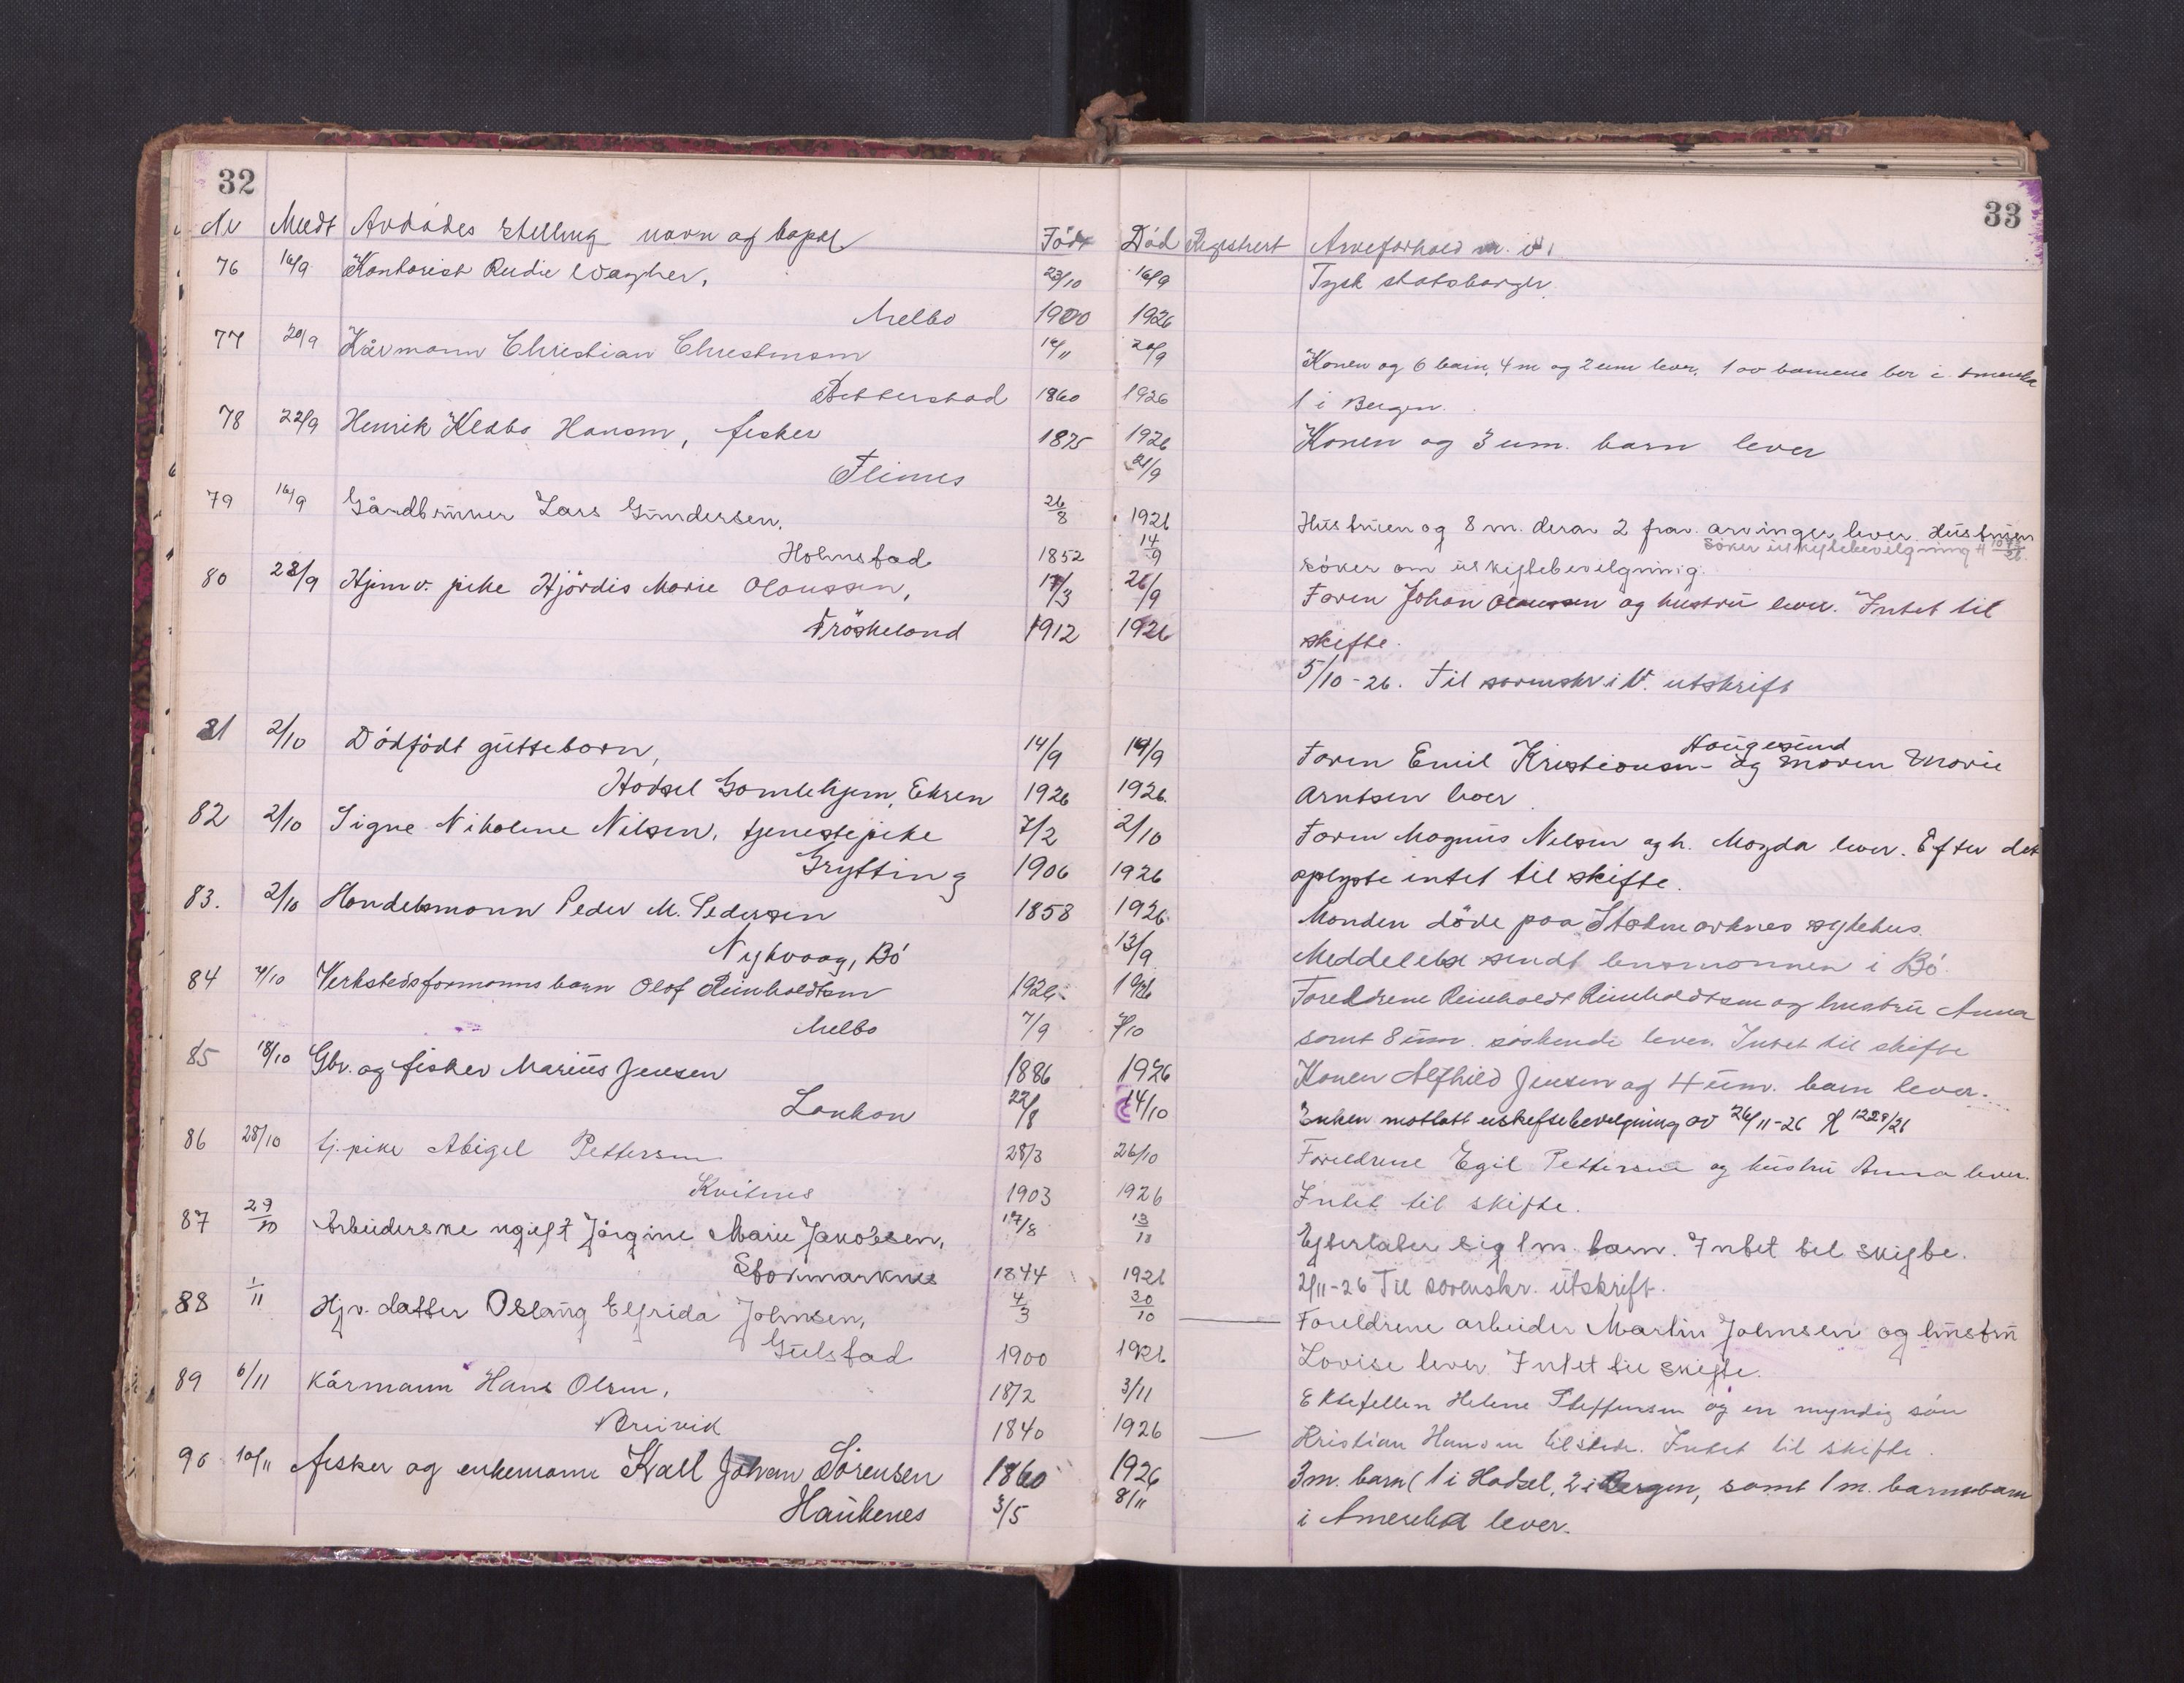 32
33
Nr Meldt Avdødes stilling navn og bopæl Född Död Registrert Arveforhold m. v.
76 16/9 Kontorist Rudie Wagner, 23/10 16/9 Tysk statsborger.
Melbo 1900 1926
77 20/9 Kårmann Christian Christensen 16/11 20/9 Konen og 6 barn, 4 m og 2 um lever. 1 av barnene bor i Amerika
1860 1926 1 i Bergen.
78 22/9 Henrik Hansen, fisker 1875 1926 Konen og 3 um. barn lever
Flines 21/9
79 16/9 Gårdbruker Lars Gundersen, 26/8 1926 Hustruen og 8 m. derav 2 frav. arvinger lever. Hustruen
søker uskiftebevilgning
Holmstad 1852 14/9 søker om uskiftebevilgning.
80 28/9 Hjemv. pike Hjördis Marie Olaussen, 17/3 26/9 Faren Johan Olaussen og hustru lever. Intet til
Fröskeland 1912 1926 skifte.
5/10-26. Til sorenskr. i V. utskrift
81 2/10 Dödfödt guttebarn, 14/9 14/9 Faren Emil Kristiansen - Haugesund og moren Marie
Hadsel Gamlehjem, Ekren 1926 1926. Arntsen lever.
82 2/10 Signe Nikoline Nilsen, tjenestepike 7/2 2/10 Faren Magnus Nilsen og h. Magda lever. Efter det
Grytting 1906 1926 oplyste intet til skifte.
83. 2/10 Handelsmann Peder M. Pedersen 1858 1926. Manden döde paa Stokmarknes sykehus.
Nykvaag, Bö 13/9 Meddelelse sendt lensmannen i Bö.
84 9/10 Verkstedsformanns barn Olaf Reinholdtsen 1926. 1926 Foreldrene Reinholdt Reinholdtsen og hustru Anna
Melbo 7/9 7/10 samt 8 um. söskende lever. Intet til skifte
85 18/10 Gbr. og fisker Marius Jensen 1886 1926 Konen Alfhild Jensen og 4 um. barn lever.
Lonkan 22/8 14/10 Enken mottatt uskiftebevilgning av 26/11-26 H 1229/26
86 28/10 tj. pike Abigel Pettersen 28/3 26/10 Foreldrene Egil Pettersen og hustru Anna lever.
Kvitnes 1903 1926 Intet til skifte.
87 29/10 Arbeiderske ugift Jörgine Marie Jakobsen, 17/8 13/10 Efterlater sig 1 m. barn. Intet til skifte.
Stokmarknes 1844 1926 2/11-26 Til sorenskr. utskrift.
88 1/11 Hjv. datter Oslaug Elfrida Johnsen, 4/3 30/10 Foreldrene arbeider Martin Johnsen og hustru
Gulstad 1900 1926 Lovise lever. Intet til skifte.
89 6/11 Kårmann Hans Olsen, 18/2 3/11 Ektefellen Helene Steffensen og en myndig sön
Breivik 1840 1926 Kristian Hansen tilstede. Intet til skifte.
90 10/11 fisker og enkemann Karl Johan Sörensen 1860 1926 3 m. barn (1 i Hadsel, 2 i Bergen, samt 1 m. barnebarn
Haukenes 3/5 8/11 i Amerika lever.